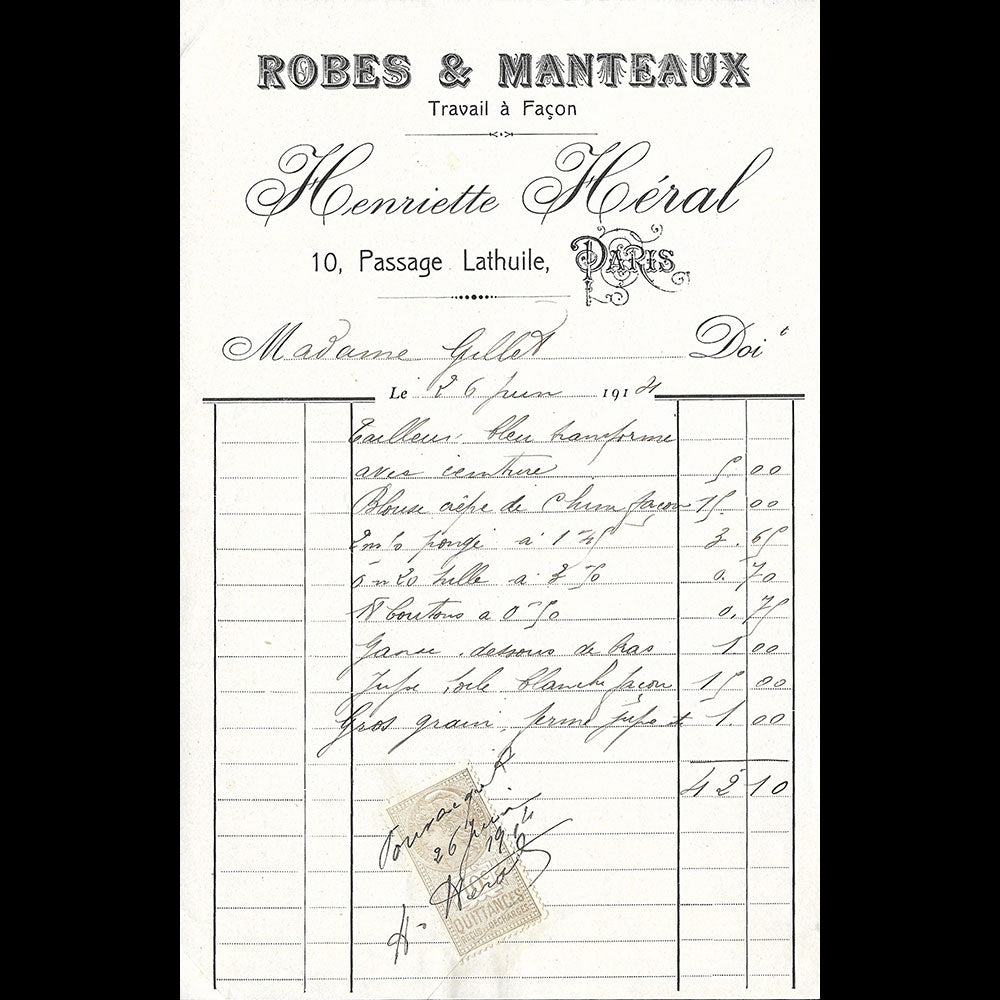 ROBES & MANTEAUX
Travail à Façon
Henriette Héral
10, Passage Lathuile, PARIS
Madame Gillet Doit
Le 26 juin 1914
Tailleur bleu transformé
avec ceinture 5 00
Blouse crêpe de Chine façon 15. 00
pongé à 1 45 3. 65
0m20 tulle à 3 50 0. 70
18 boutons a 0 50 0. 75
Ganse, dessous de bras 1. 00
Jupe toile blanche façon 15 00
Gros grain, ferme jupe 1. 00
42 10
Pour acquit
26 juin
1914
H. Héral
QUITTANCES
REÇUS & DÉCHARGES